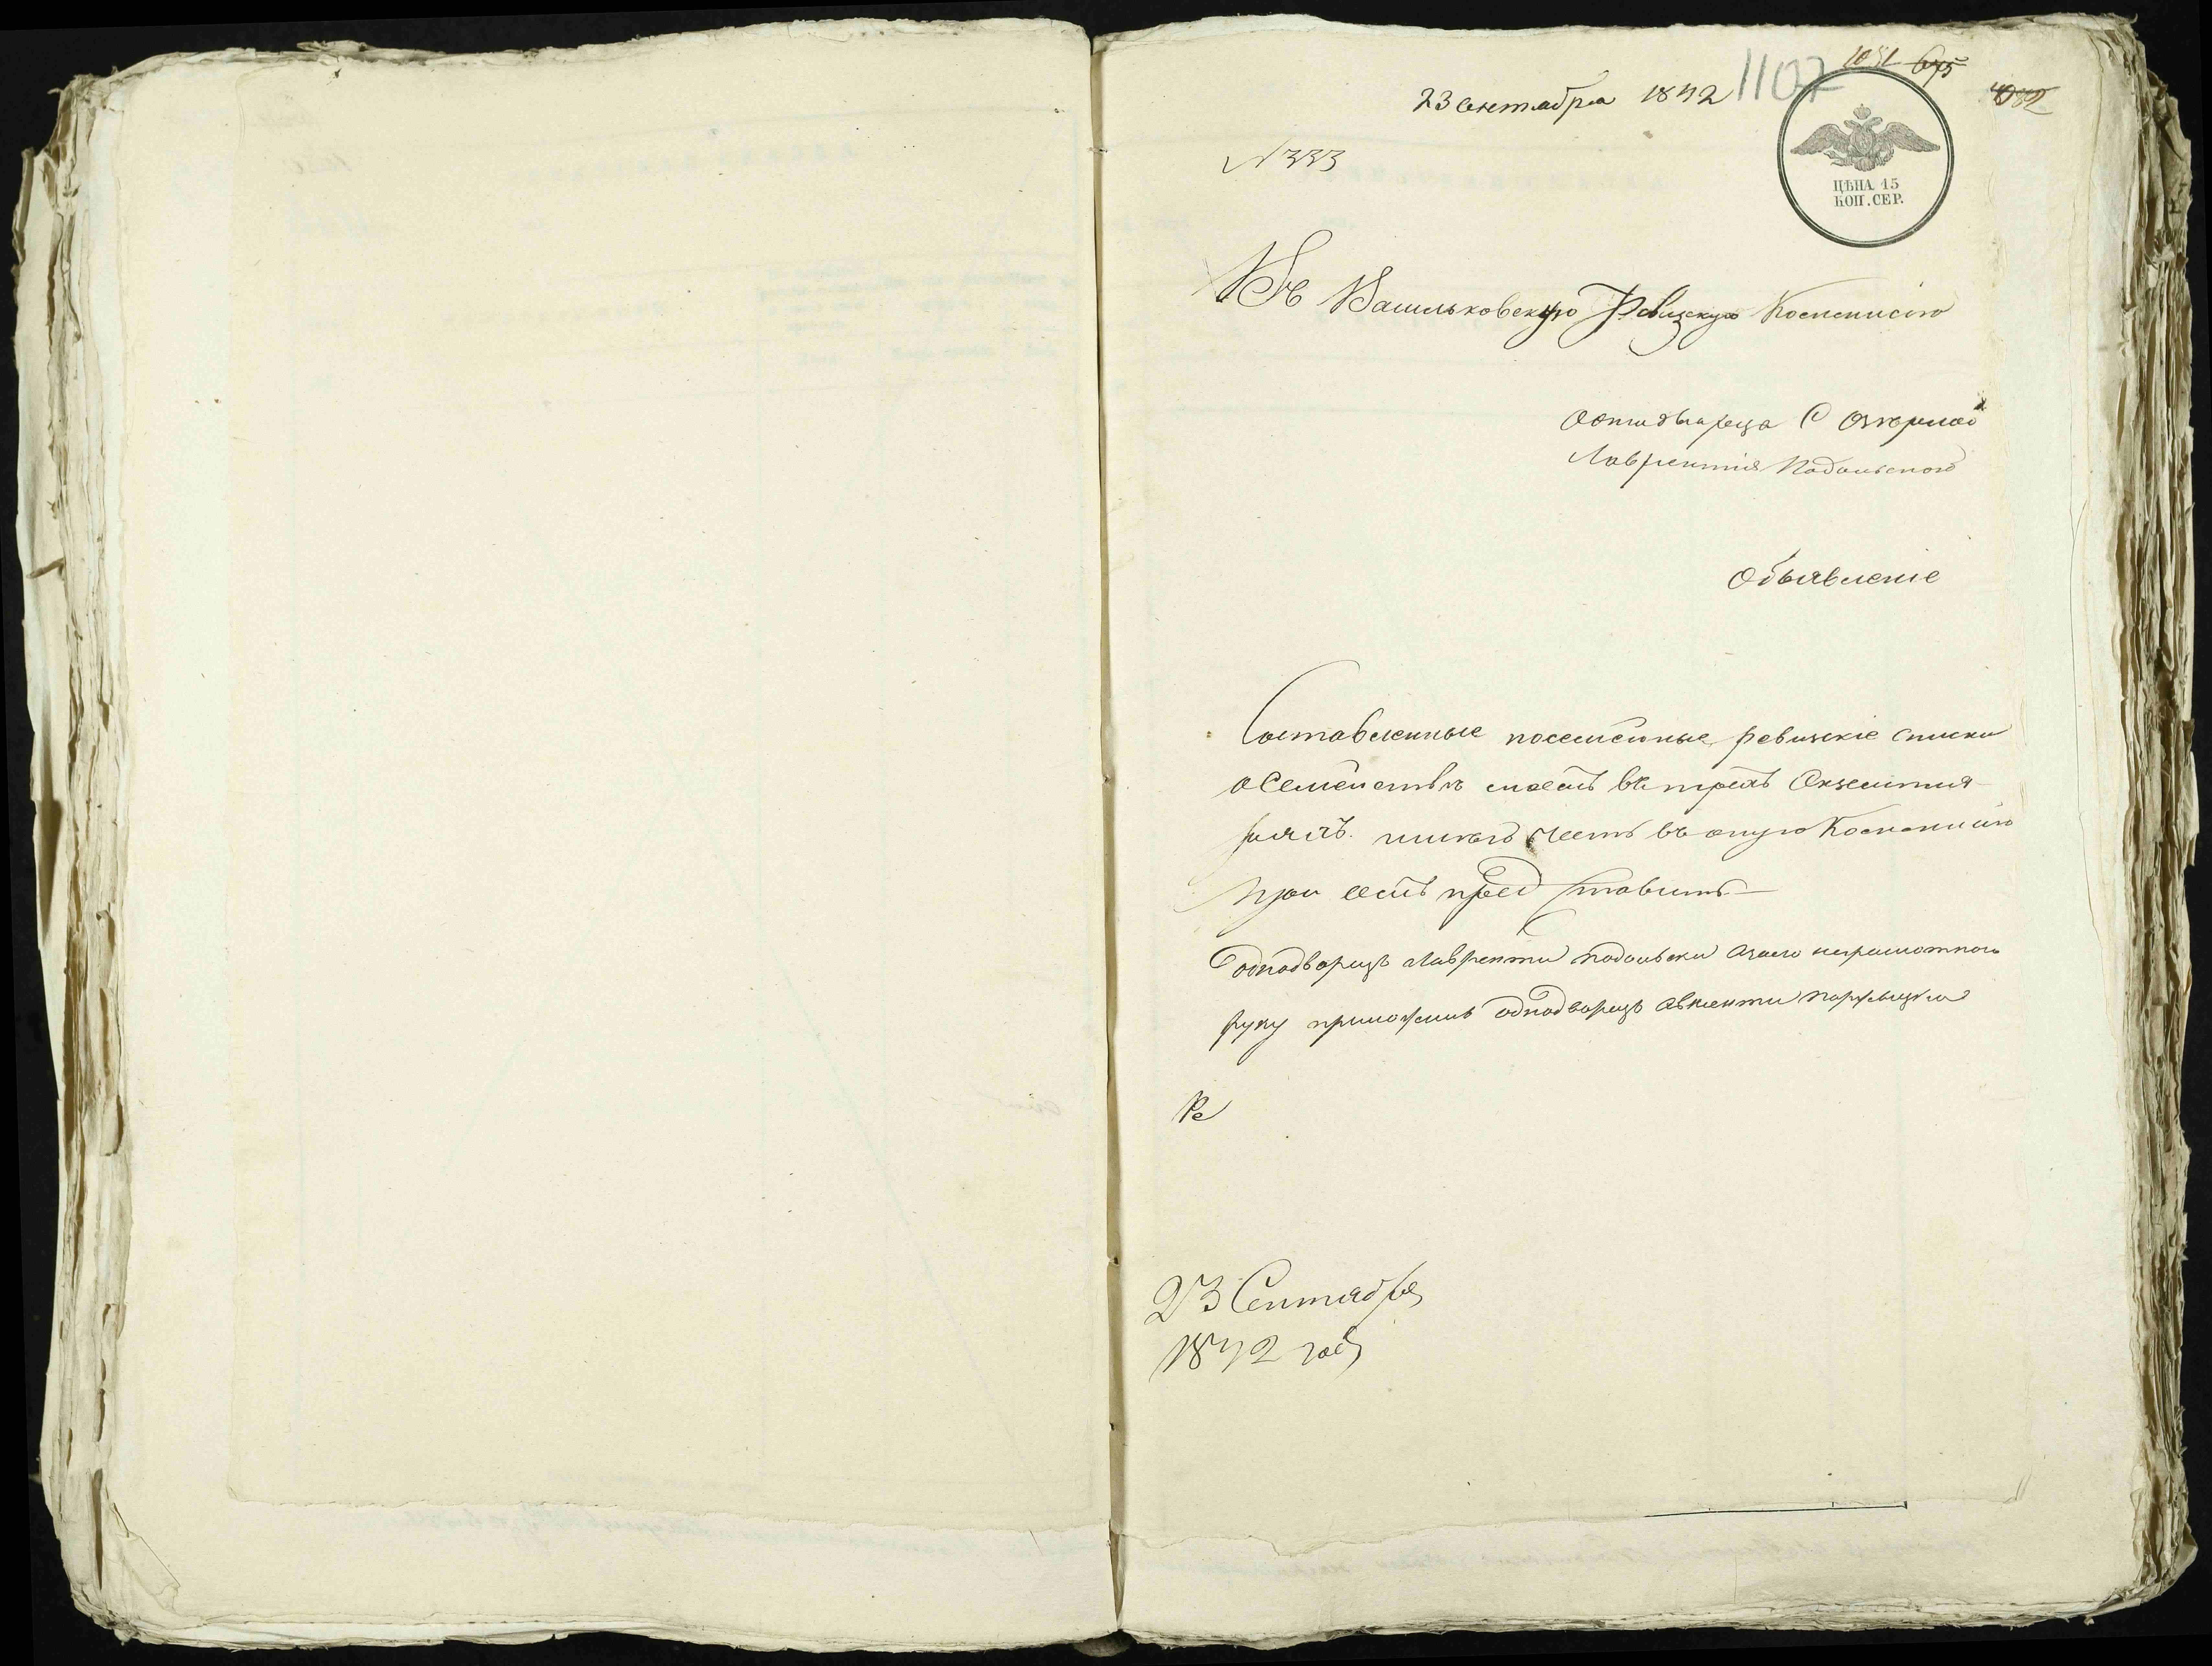 23 Сентября 1842
1107
1051
675
1082
N 333
ЦѢНА 15
КОП. СЕР.
Въ Васильковскую Ревизскую Коммисію
Однодворца С Озерной
Лаврентія Подольского
Объявленіе
Составленные посемейные ревизскіе списки
о Семействѣ моемъ въ трехъ Екземпля
рахъ имѣю честь въ оную Коммисію
при семъ представить
однодворецъ Лавренти Подольски а за его неграмотного
руку приложилъ однодворецъ
Ре
23 Сентября
1842 года